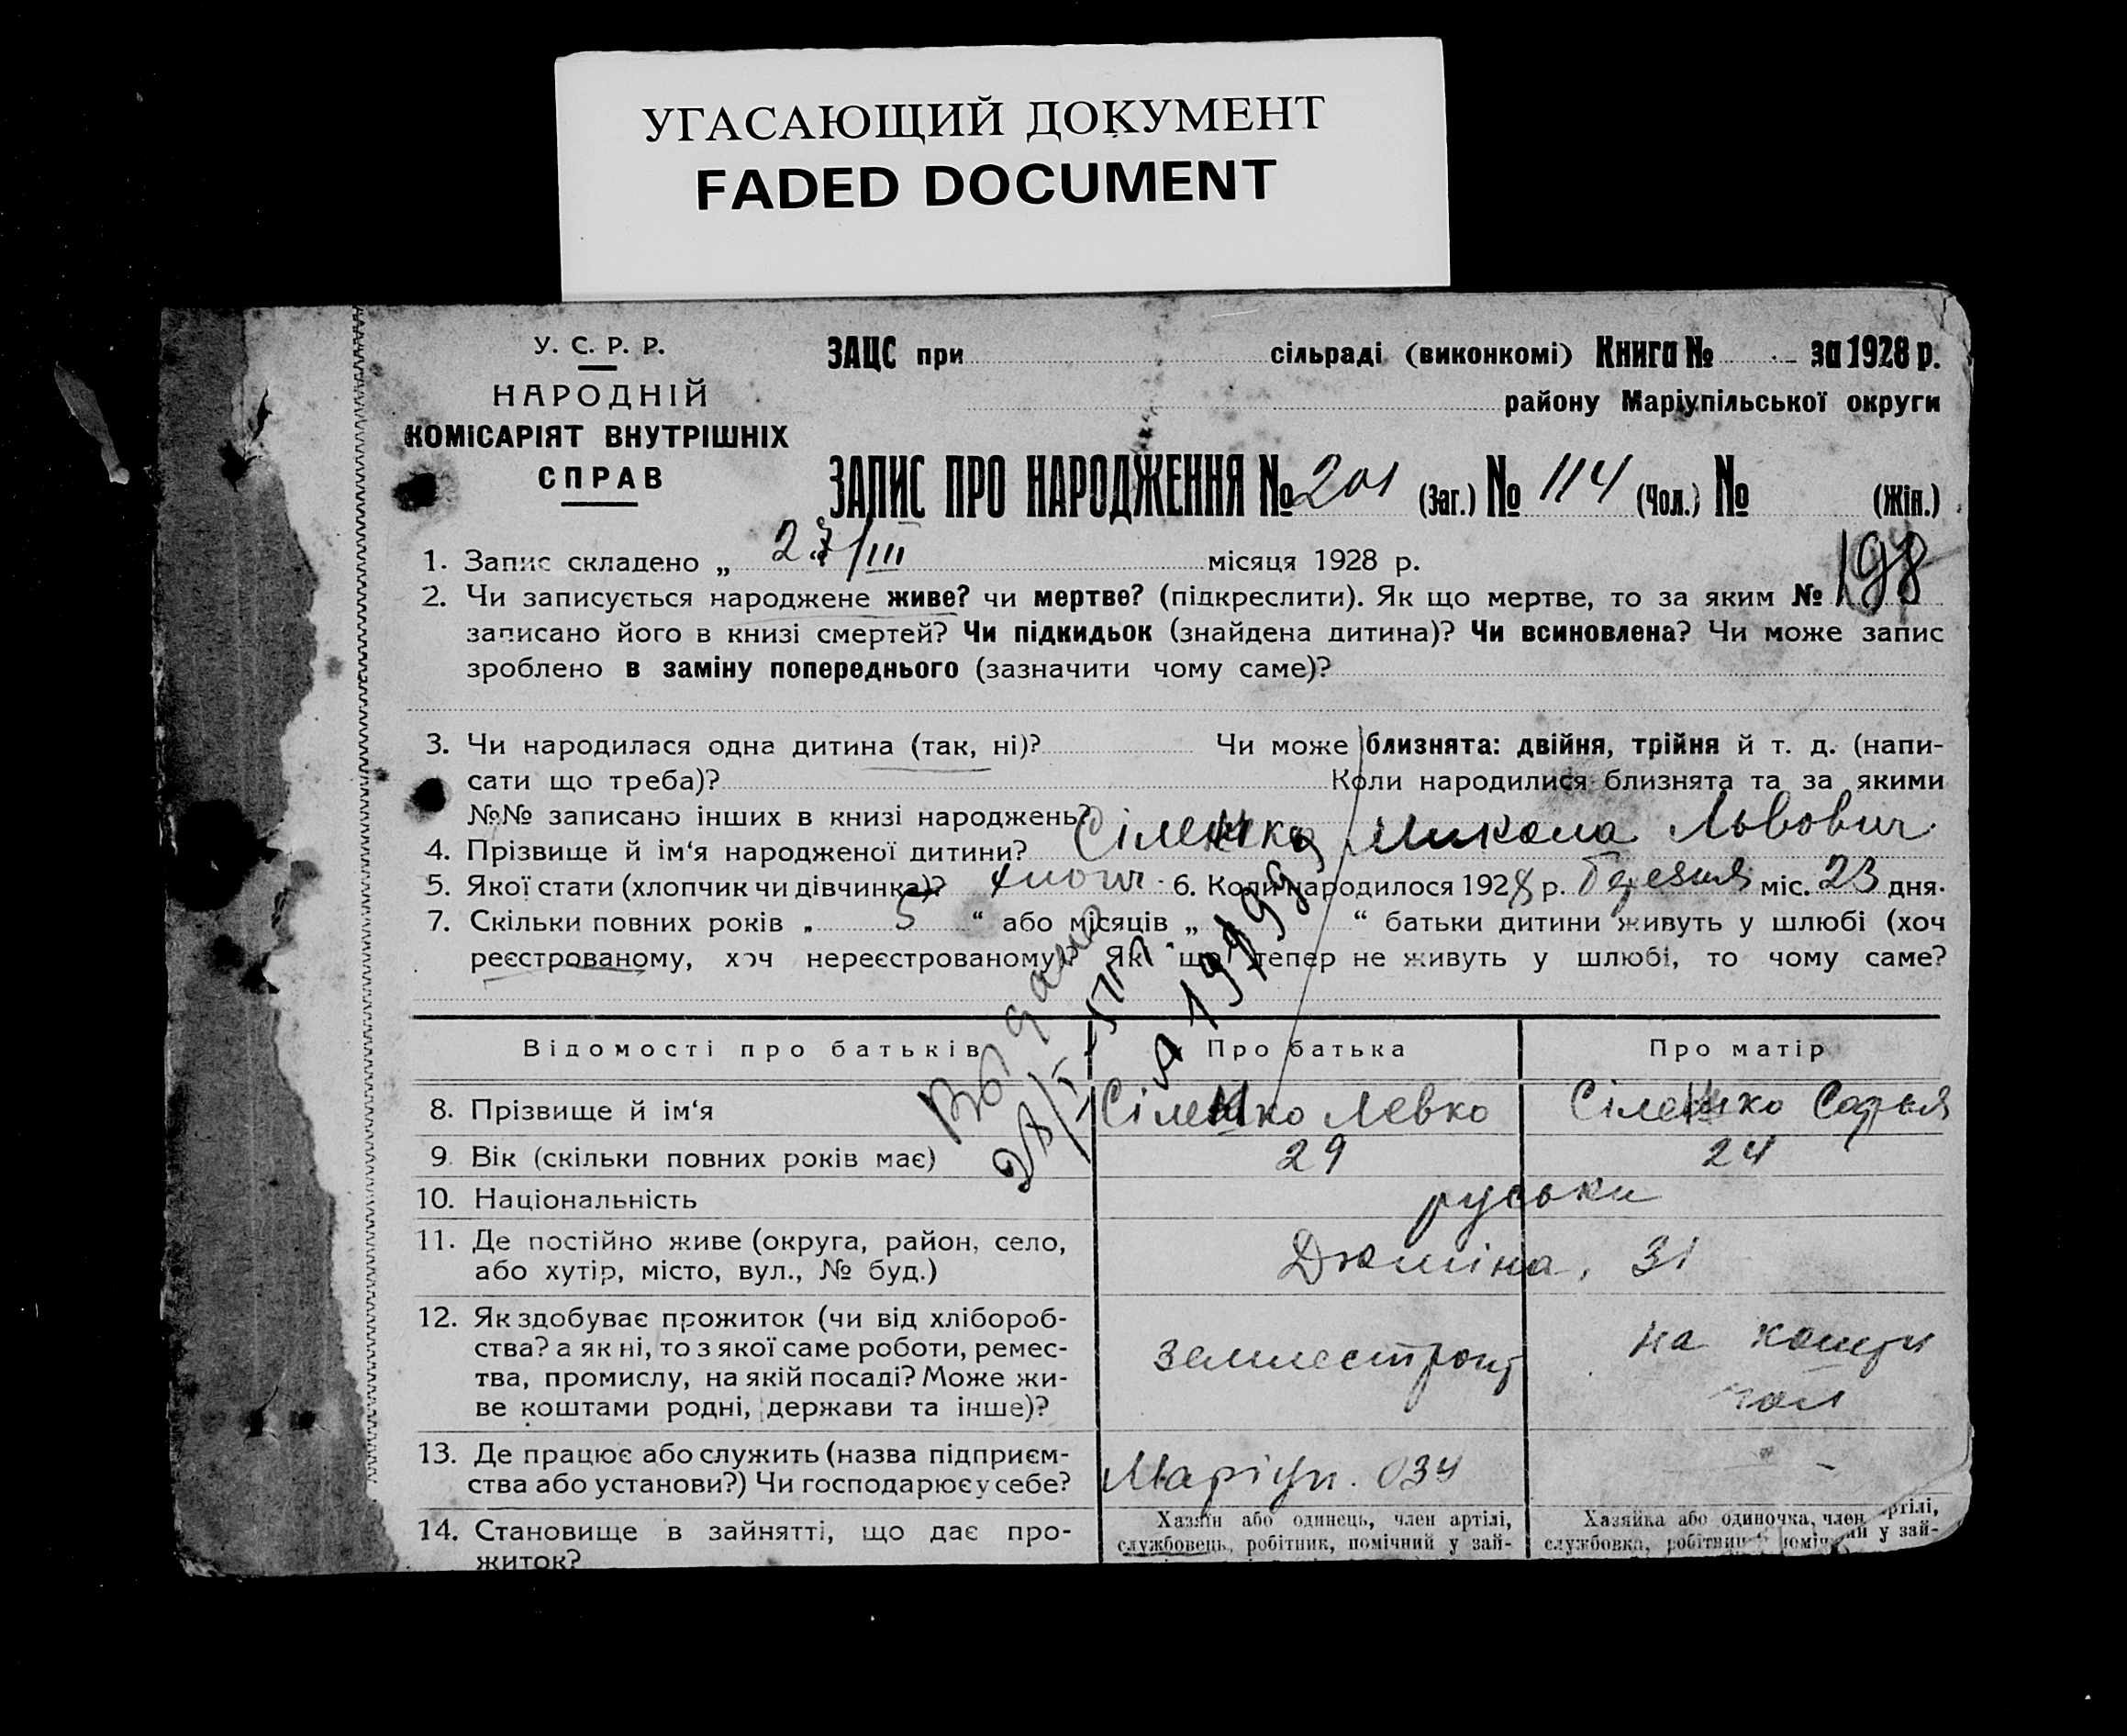 УГАСАЮЩИЙ ДОКУМЕНТ
FADED DOCUMENT
У. С. Р. Р.
НАРОДНІЙ
КОМІСАРІЯТ ВНУТРІШНІХ
СПРАВ
ЗАЦС при сільраді (виконкомі) Книга № за 1928 р.
району Маріупільської округи
ЗАПИС ПРО НАРОДЖЕННЯ № 201 (Заг.) № 114 (Чол.) № (Жін.)
1. Запис складено „ 27/III місяця 1928 р.
198
2. Чи записується народжене живе? чи мертве? (підкреслити). Як що мертве, то за яким №
записано його в книзі смертей? Чи підкидьок (знайдена дитина)? Чи всиновлена? Чи може запис
зроблено в заміну попереднього (зазначити чому саме)?
3. Чи народилася одна дитина (так, ні)? Чи може близнята: двійня, трійня й т. д. (напи-
сати що треба)? Коли народилися близнята та за якими
№№ записано інших в книзі народжень?
4. Прізвище й ім‘я народженої дитини? Сіленко Микола Львович
5. Якої стати (хлопчик чи дівчинка)? хлопч. 6. Коли народилося 1928 р. березня міс. 23 дня.
7. Скільки повних років „ 5 “ або місяців „ “ батьки дитини живуть у шлюбі (хоч
реєстрованому, хоч нереєстрованому)? Як що тепер не живуть у шлюбі, то чому саме?
Відомості про батьків Про батька Про матір
8. Прізвище й ім‘я Сіленко Левко Сіленко Софья
9. Вік (скільки повних років має) 29 24
10. Національність руськи
11. Де постійно живе (округа, район, село,
або хутір, місто, вул., № буд.) 31
12. Як здобуває прожиток (чи від хлібороб-
ства? а як ні, то з якої саме роботи, ремес-
тва, промислу, на якій посаді? Може жи-
ве коштами родні, держави та інше)?
на кошти
чол
13. Де працює або служить (назва підприєм-
ства або установи?) Чи господарює у себе? Маріуп. ОЗУ -
14. Становище в зайнятті, що дає про-
житок?
Хазяїн або одинець, член артілі,
службовець, робітник, помічний у зай-
Хазяйка або одиночка, член артілі,
службовка, у зай-